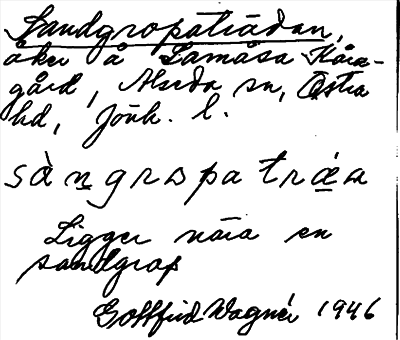 Sandgropaträdan,
åker å Lamåsa Kåra-
gård, Alseda sn, Östra
hd, Jönk. l.
sàngropaträa
Ligger nära en
sandgrop
Gottfrid Wagnér 1946